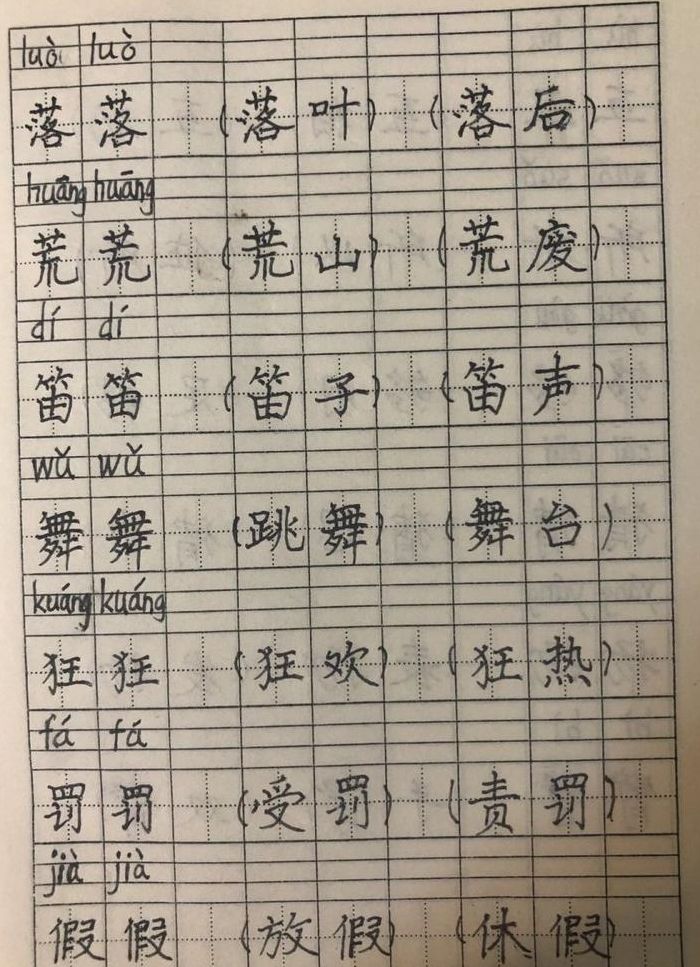 luò luò
落 落 (落 叶) (落 后)
huāng huāng
荒 荒 (荒 山) (荒 废)
dí dí
笛 笛 (笛 子) (笛 声)
wǔ wǔ
舞 舞 (跳 舞) (舞 台)
kuáng kuáng
狂 狂 (狂 欢) (狂 热)
fá fá
罚 罚 (受 罚) (责 罚)
jià jià
假 假 (放 假) (休 假)